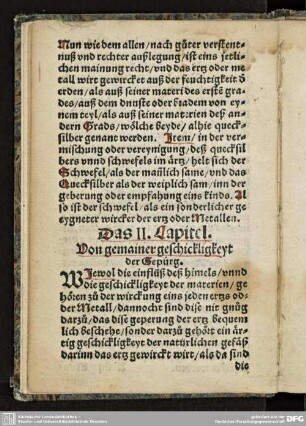 Nun wie dem allen/nach gůter verstent-
nuß vnd rechter außlegung/ist eins jetli-
chen mainung recht/vnd das ertz oder me
tall wirt gewircket auß der feuchtigkeit ð
erden/als auß seiner materi des erstẽ gra-
des/auß dem dunste oder bradem von ey-
nem teyl/als auß seiner materien deß an-
dern Grads/wölche beyde/alhie queck-
silber genant werden. Item/in der ver-
mischung oder vereynigung/deß quecksil
bers vnnd schwefels im ärtz/helt sich der
Schwefel/als der mañlich same/vnd das
Quecksilber als der weiplich sam/inn der
geberung oder empfahung eins kinds. Al
so ist der schwefel/als ein sonderlicher ge
eygneter wircker der ertz oder Metallen.
Das II. Capitel.
Von gemainer geschickligkeyt
der Gepürg.
Wiewol die einflüß deß himels/vnnd
die geschickligkeyt der materien/ge
hören zů der wirckung eins jeden ertzs od-
der Metall/dannocht sind dise nit gnůg
darzů/das dise geperung der ertz bequem
lich beschehe/sonder darzů gehöt ein är-
tig geschickligkeyt der natürlichen gefäß
darinn das ertz gewirckt wirt/als da sind
die